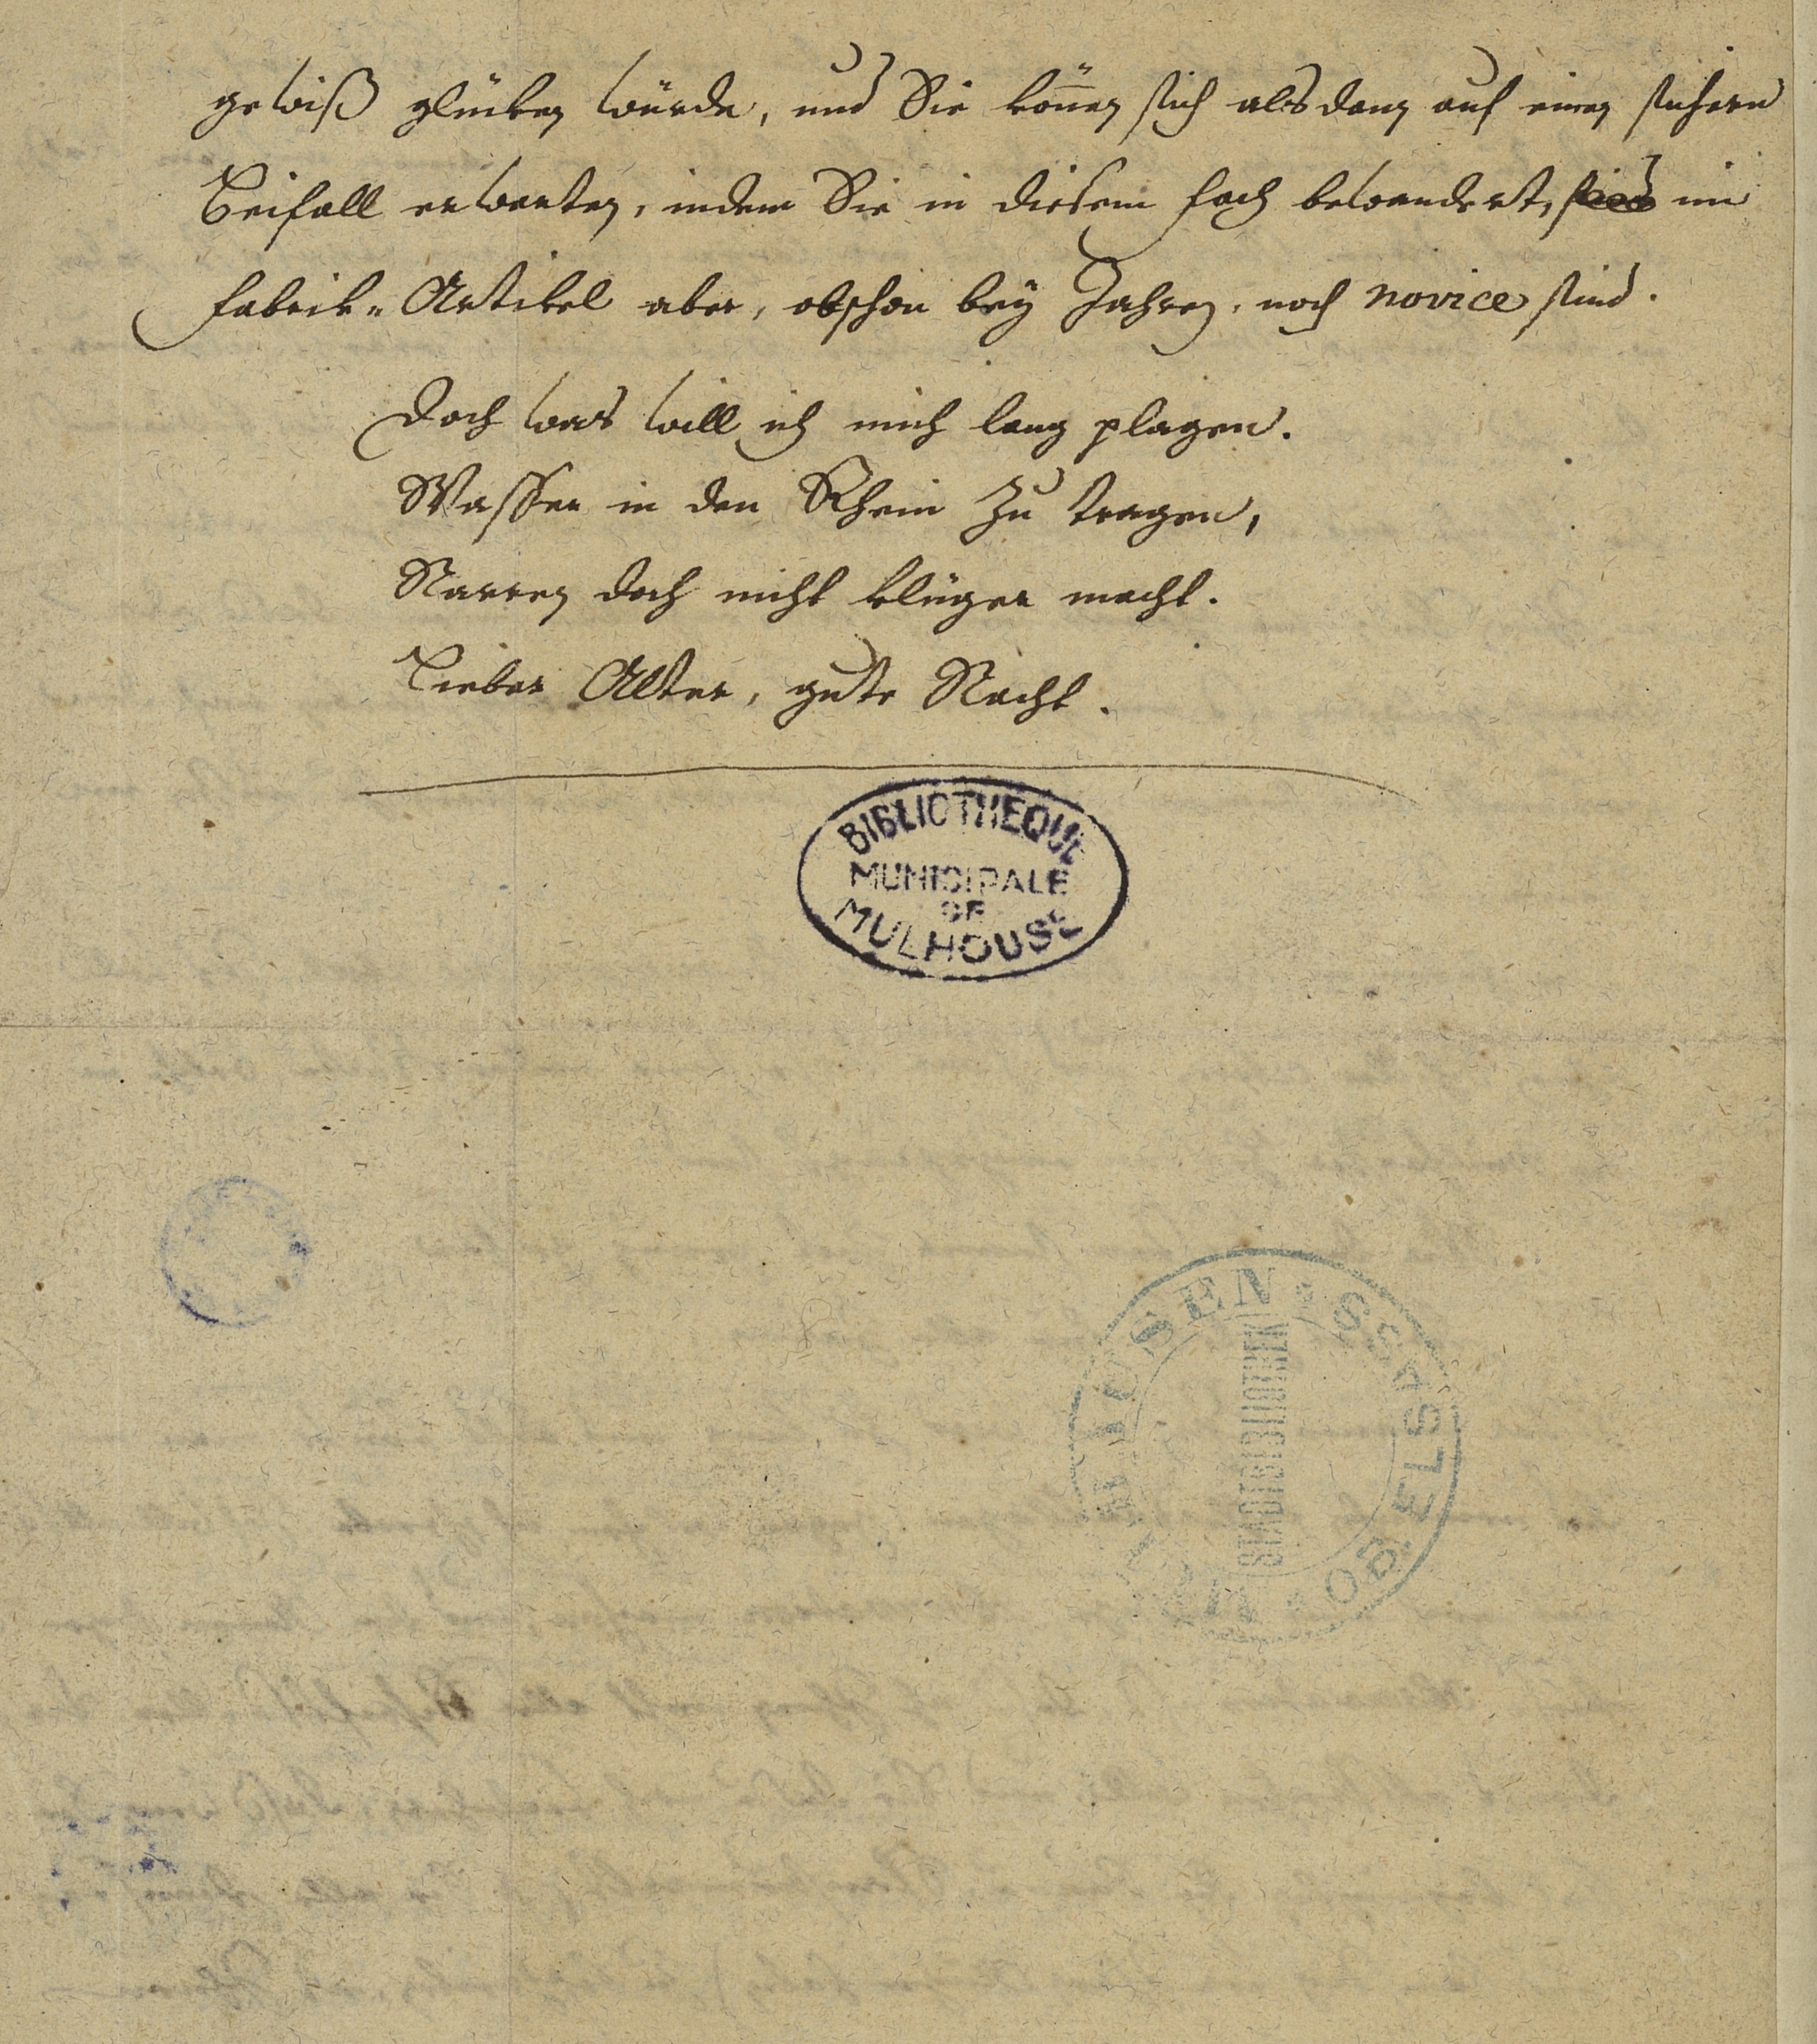 gewiß glücken würde, und Sie können sich alsdann auf einen sichern
Beifall erwarten, indem Sie in diesem Fach bewandert, sind im
Fabrik-Artikel aber, obschon bey Jahren, noch novice sind.
Doch was will ich mich lang plagen.
Wasser in den Rhein zu tragen,
Narren doch nicht klüger macht.
Lieber Alter, gute Nacht.
BIBLIOTHEQUE
MUNICIPALE
DE
MULHOUSE
STADTBIBLIOTHEK
OB. ELSASS